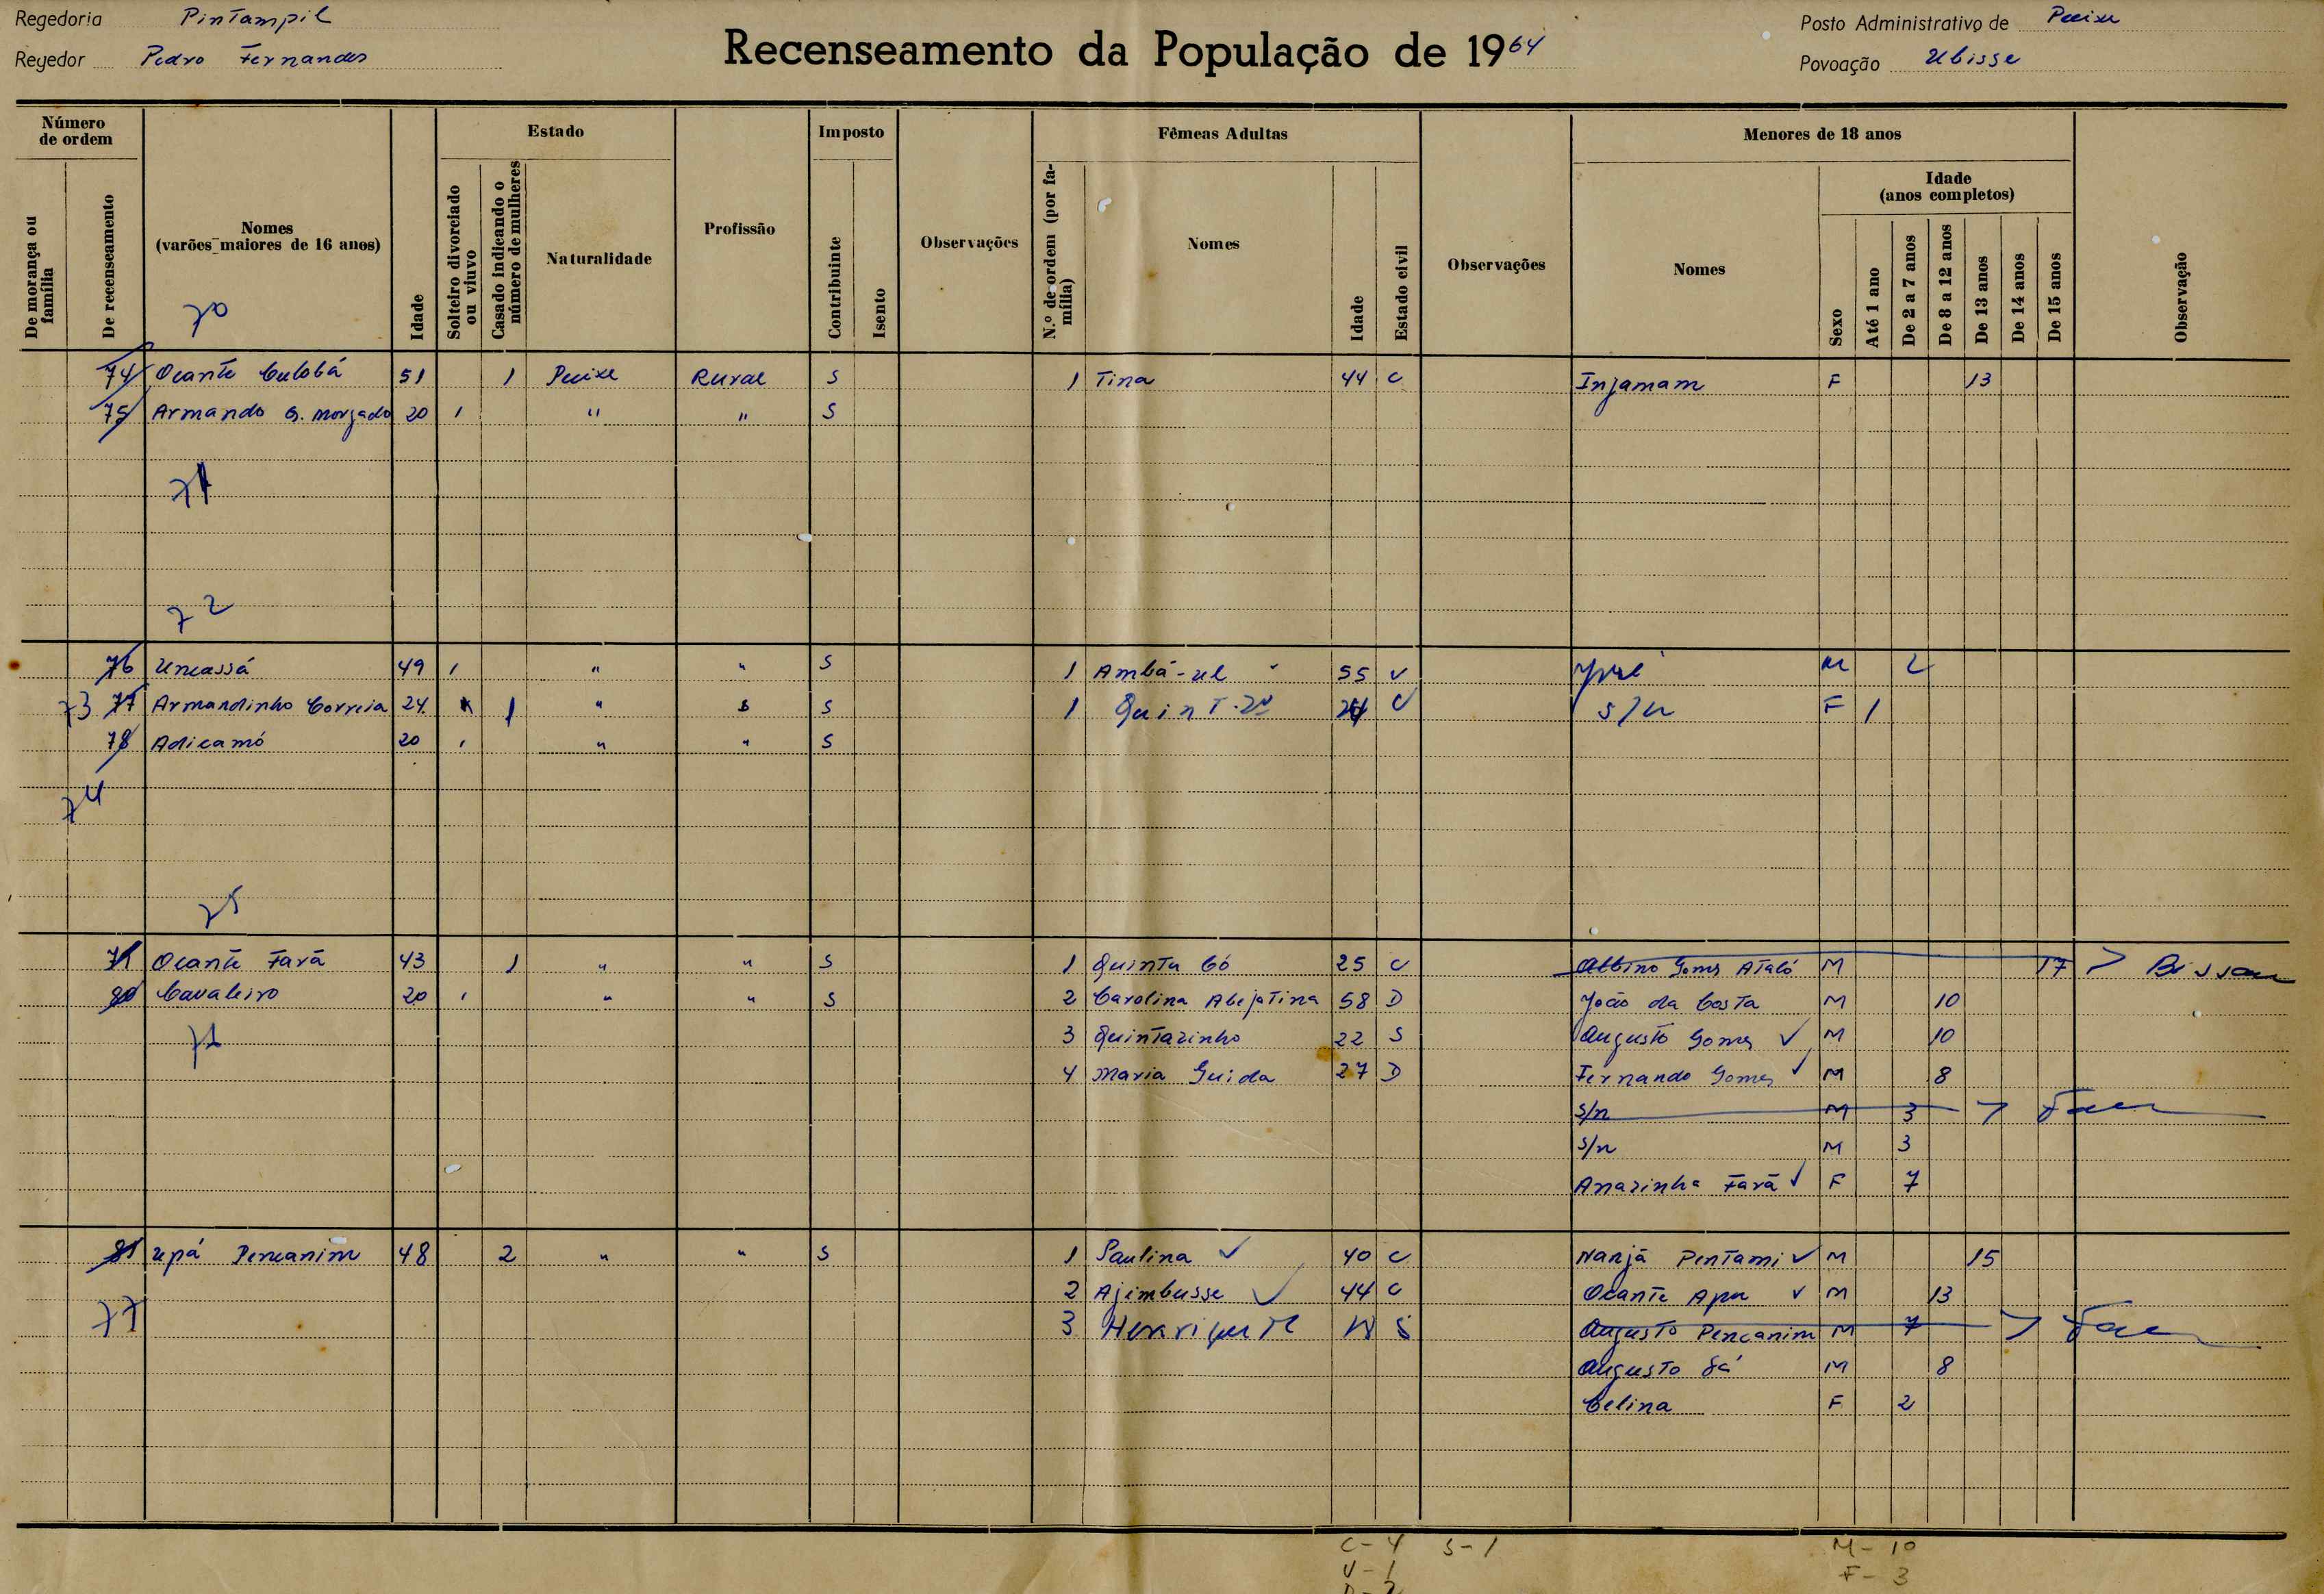 Regedoria Pintampil
Regedor Pedro Fernandes
Recenseamento da População de 1964
Posto Administrativo de Pecixe
Povoação Ubisse
Número de ordem
De morança ou família
De recenseamento
Nomes (varões maiores de 16 anos)
Idade
Estado
Solteiro divorciado ou viuvo
Casado indicando o número de mulheres
Naturalidade
Profissão
Imposto
Contribuinte
Isento
Observações
Fêmeas Adultas
N.º de ordem (por família)
Nomes
Idade
Estado civil
Observações
Menores de 18 anos
Nomes
Sexo
Idade (anos completos)
Até 1 ano
De 2 a 7 anos
De 8 a 12 anos
De 13 anos
De 14 anos
De 15 anos
Observação
70
74 Ocante Culobá 51 1 Pecixe Rural S 1 Tina 44 C Injamam F 13
75 Armando G. Morgado 20 1 " " S
71
72
76 Uncassá 49 1 " " S 1 Ambá-ul 55 V M 2
73 77 Armandinho Correia 24 1 " S 1 C S/n F 1
78 Adicamó 20 1 " " S
74
75
Ocante Fará 43 1 " " S 1 Quinta Có 25 C Albino Gomes Ataló M 17 > Bissau
80 Cavaleiro 20 1 " " S 2 Carolina Abejatina 58 D João da Costa M 10
3 Quintazinho 22 S Augusto Gomes ✓ M 10
4 Maria Guida 27 D Fernando Gomes ✓ M 8
S/n M 3 >
S/n M 3
Anazinha Fará ✓ F 7
81 Upá Pencanim 48 2 " " S 1 Paulina ✓ 40 C Nanjã Pentami ✓ M 15
2 Ajimbusse ✓ 44 C Ocante Apu ✓ M 13
77 3 S Augusto Pencanim M 7 >
Augusto Sá M 8
Celina F 2
C - 4 S - 1 M - 10
V - 1 F - 3
D - 2